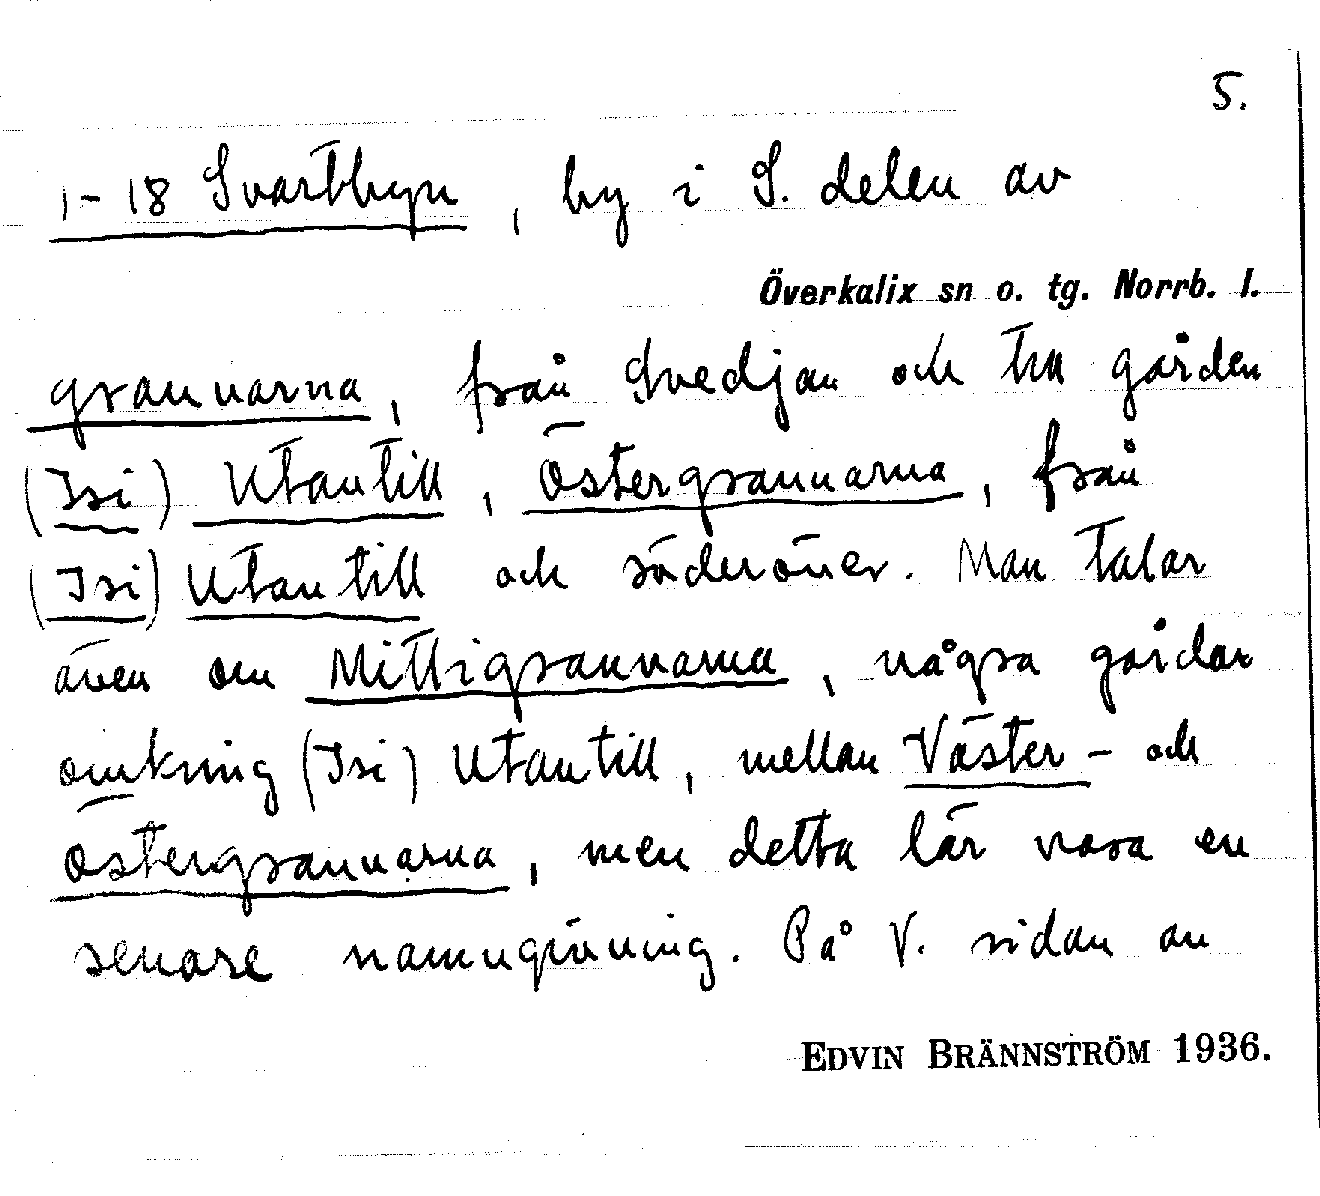 5.
1-18 Svartbyn, by i S. delen av
Överkalix sn o. tg. Norrb. l.
grannarna, från Svedjan och till gården
(Isi) Utantill, Östergrannarna, från
(Isi) Utantill och söderöver. Man talar
även om Mittigrannarna, några gårdar
omkring (Isi) Utantill, mellan Väster- och
Östergrannarna, men detta lär vara en
senare namngivning. På V. sidan av
EDVIN BRÄNNSTRÖM 1936.